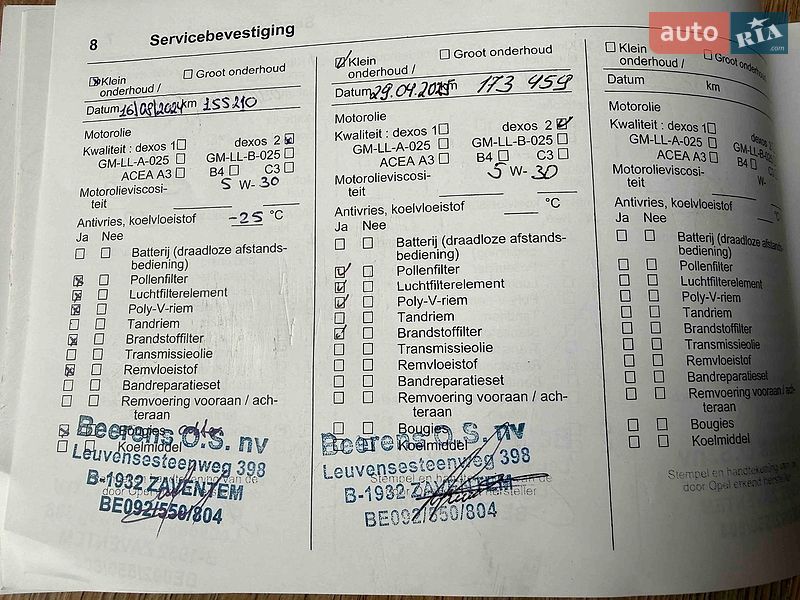 auto RIA .com
8 Servicebevestiging
Klein onderhoud / Groot onderhoud
Datum 16/08/2024 km 155210
Motorolie
Kwaliteit : dexos 1 dexos 2
GM-LL-A-025 GM-LL-B-025
ACEA A3 B4 C3
Motorolieviscosi-
teit 5 W- 30
Antivries, koelvloeistof -25 °C
Ja Nee
Batterij (draadloze afstands-
bediening)
Pollenfilter
Luchtfilterelement
Poly-V-riem
Tandriem
Brandstoffilter
Transmissieolie
Remvloeistof
Bandreparatieset
Remvoering vooraan / ach-
teraan
Bougies
Koelmiddel
Beerens O.S. nv
Leuvensesteenweg 398
B-1932 ZAVENTEM
BE092/550/804
Klein onderhoud / Groot onderhoud
Datum 29.04.2025 173 459
Motorolie
Kwaliteit : dexos 1 dexos 2
GM-LL-A-025 GM-LL-B-025
ACEA A3 B4 C3
Motorolieviscosi-
teit 5 W- 30
Antivries, koelvloeistof °C
Ja Nee
Batterij (draadloze afstands-
bediening)
Pollenfilter
Luchtfilterelement
Poly-V-riem
Tandriem
Brandstoffilter
Transmissieolie
Remvloeistof
Bandreparatieset
Remvoering vooraan / ach-
teraan
Bougies
Koelmiddel
Beerens O.S. nv
Leuvensesteenweg 398
B-1932 ZAVENTEM
BE092/550/804
Klein onderhoud / Groot onderhoud
Datum km
Motorolie
Kwaliteit : dexos 1 dexos 2
GM-LL-A-025 GM-LL-B-025
ACEA A3 B4 C3
Motorolieviscosi-
teit W-
Antivries, koelvloeistof °C
Ja Nee
Batterij (draadloze afstands-
bediening)
Pollenfilter
Luchtfilterelement
Poly-V-riem
Tandriem
Brandstoffilter
Transmissieolie
Remvloeistof
Bandreparatieset
Remvoering vooraan / ach-
teraan
Bougies
Koelmiddel
Stempel en handtekening van de
door Opel erkend hersteller